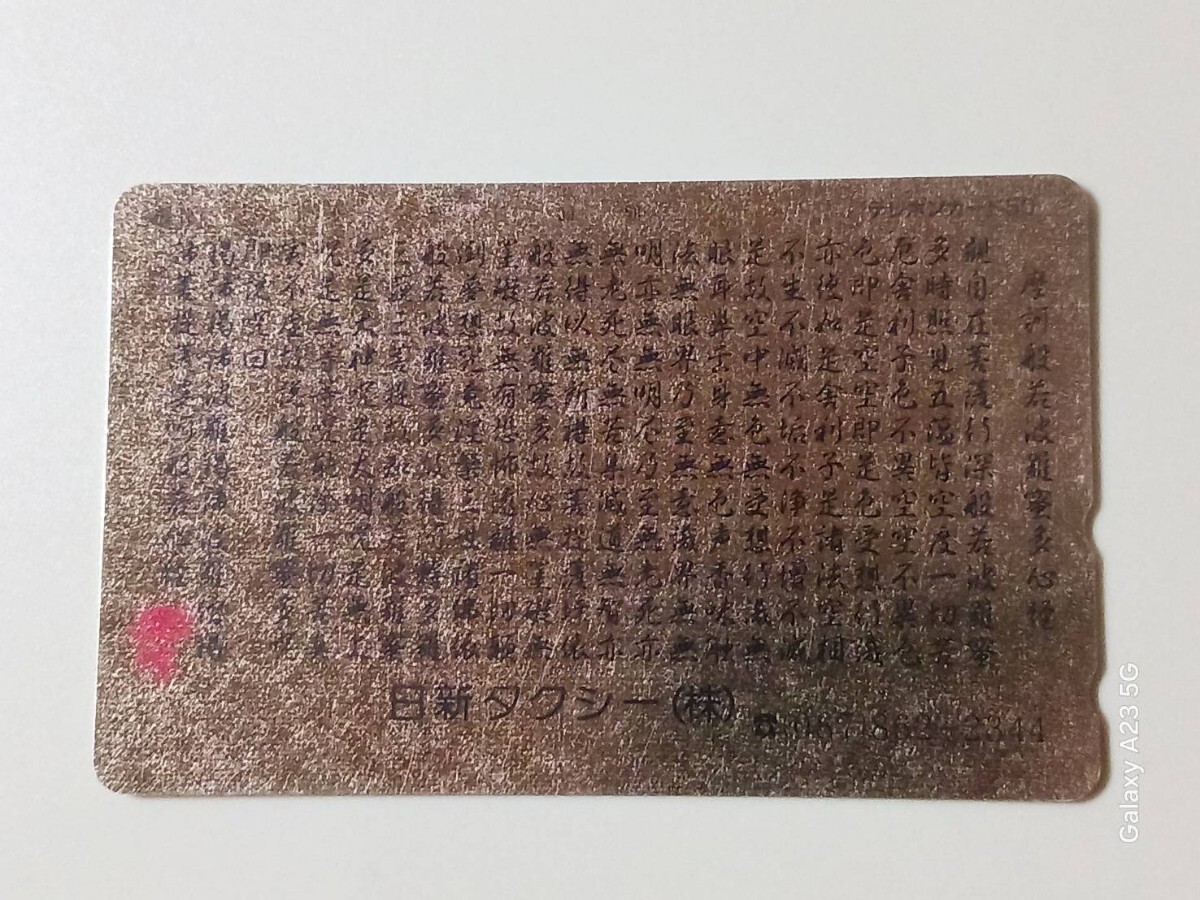 テレホンカード50
摩訶般若波羅蜜多心経
観自在菩薩行深般若波羅蜜
多時照見五蘊皆空度一切苦
厄舎利子色不異空空不異色
色即是空空即是色受想行識
亦復如是舎利子是諸法空相
不生不滅不垢不浄不増不減
是故空中無色無受想行識無
眼耳鼻舌身意無色声香味触
法無眼界乃至無意識界無無
明亦無無明尽乃至無老死亦
無老死尽無苦集滅道無智亦
無得以無所得故菩提薩埵依
般若波羅蜜多故心無罣礙無
罣礙故無有恐怖遠離一切顛
倒夢想究竟涅槃三世諸仏依
般若波羅蜜多故得阿耨多羅
三藐三菩提故知般若波羅蜜
多是大神咒是大明咒是無上
咒是無等等咒能除一切苦真
実不虚故説般若波羅蜜多咒
即説咒曰
羯諦羯諦波羅羯諦波羅僧羯
諦菩提薩婆訶般若心経
日新タクシー(株)
☎087-862-2344
Galaxy A23 5G